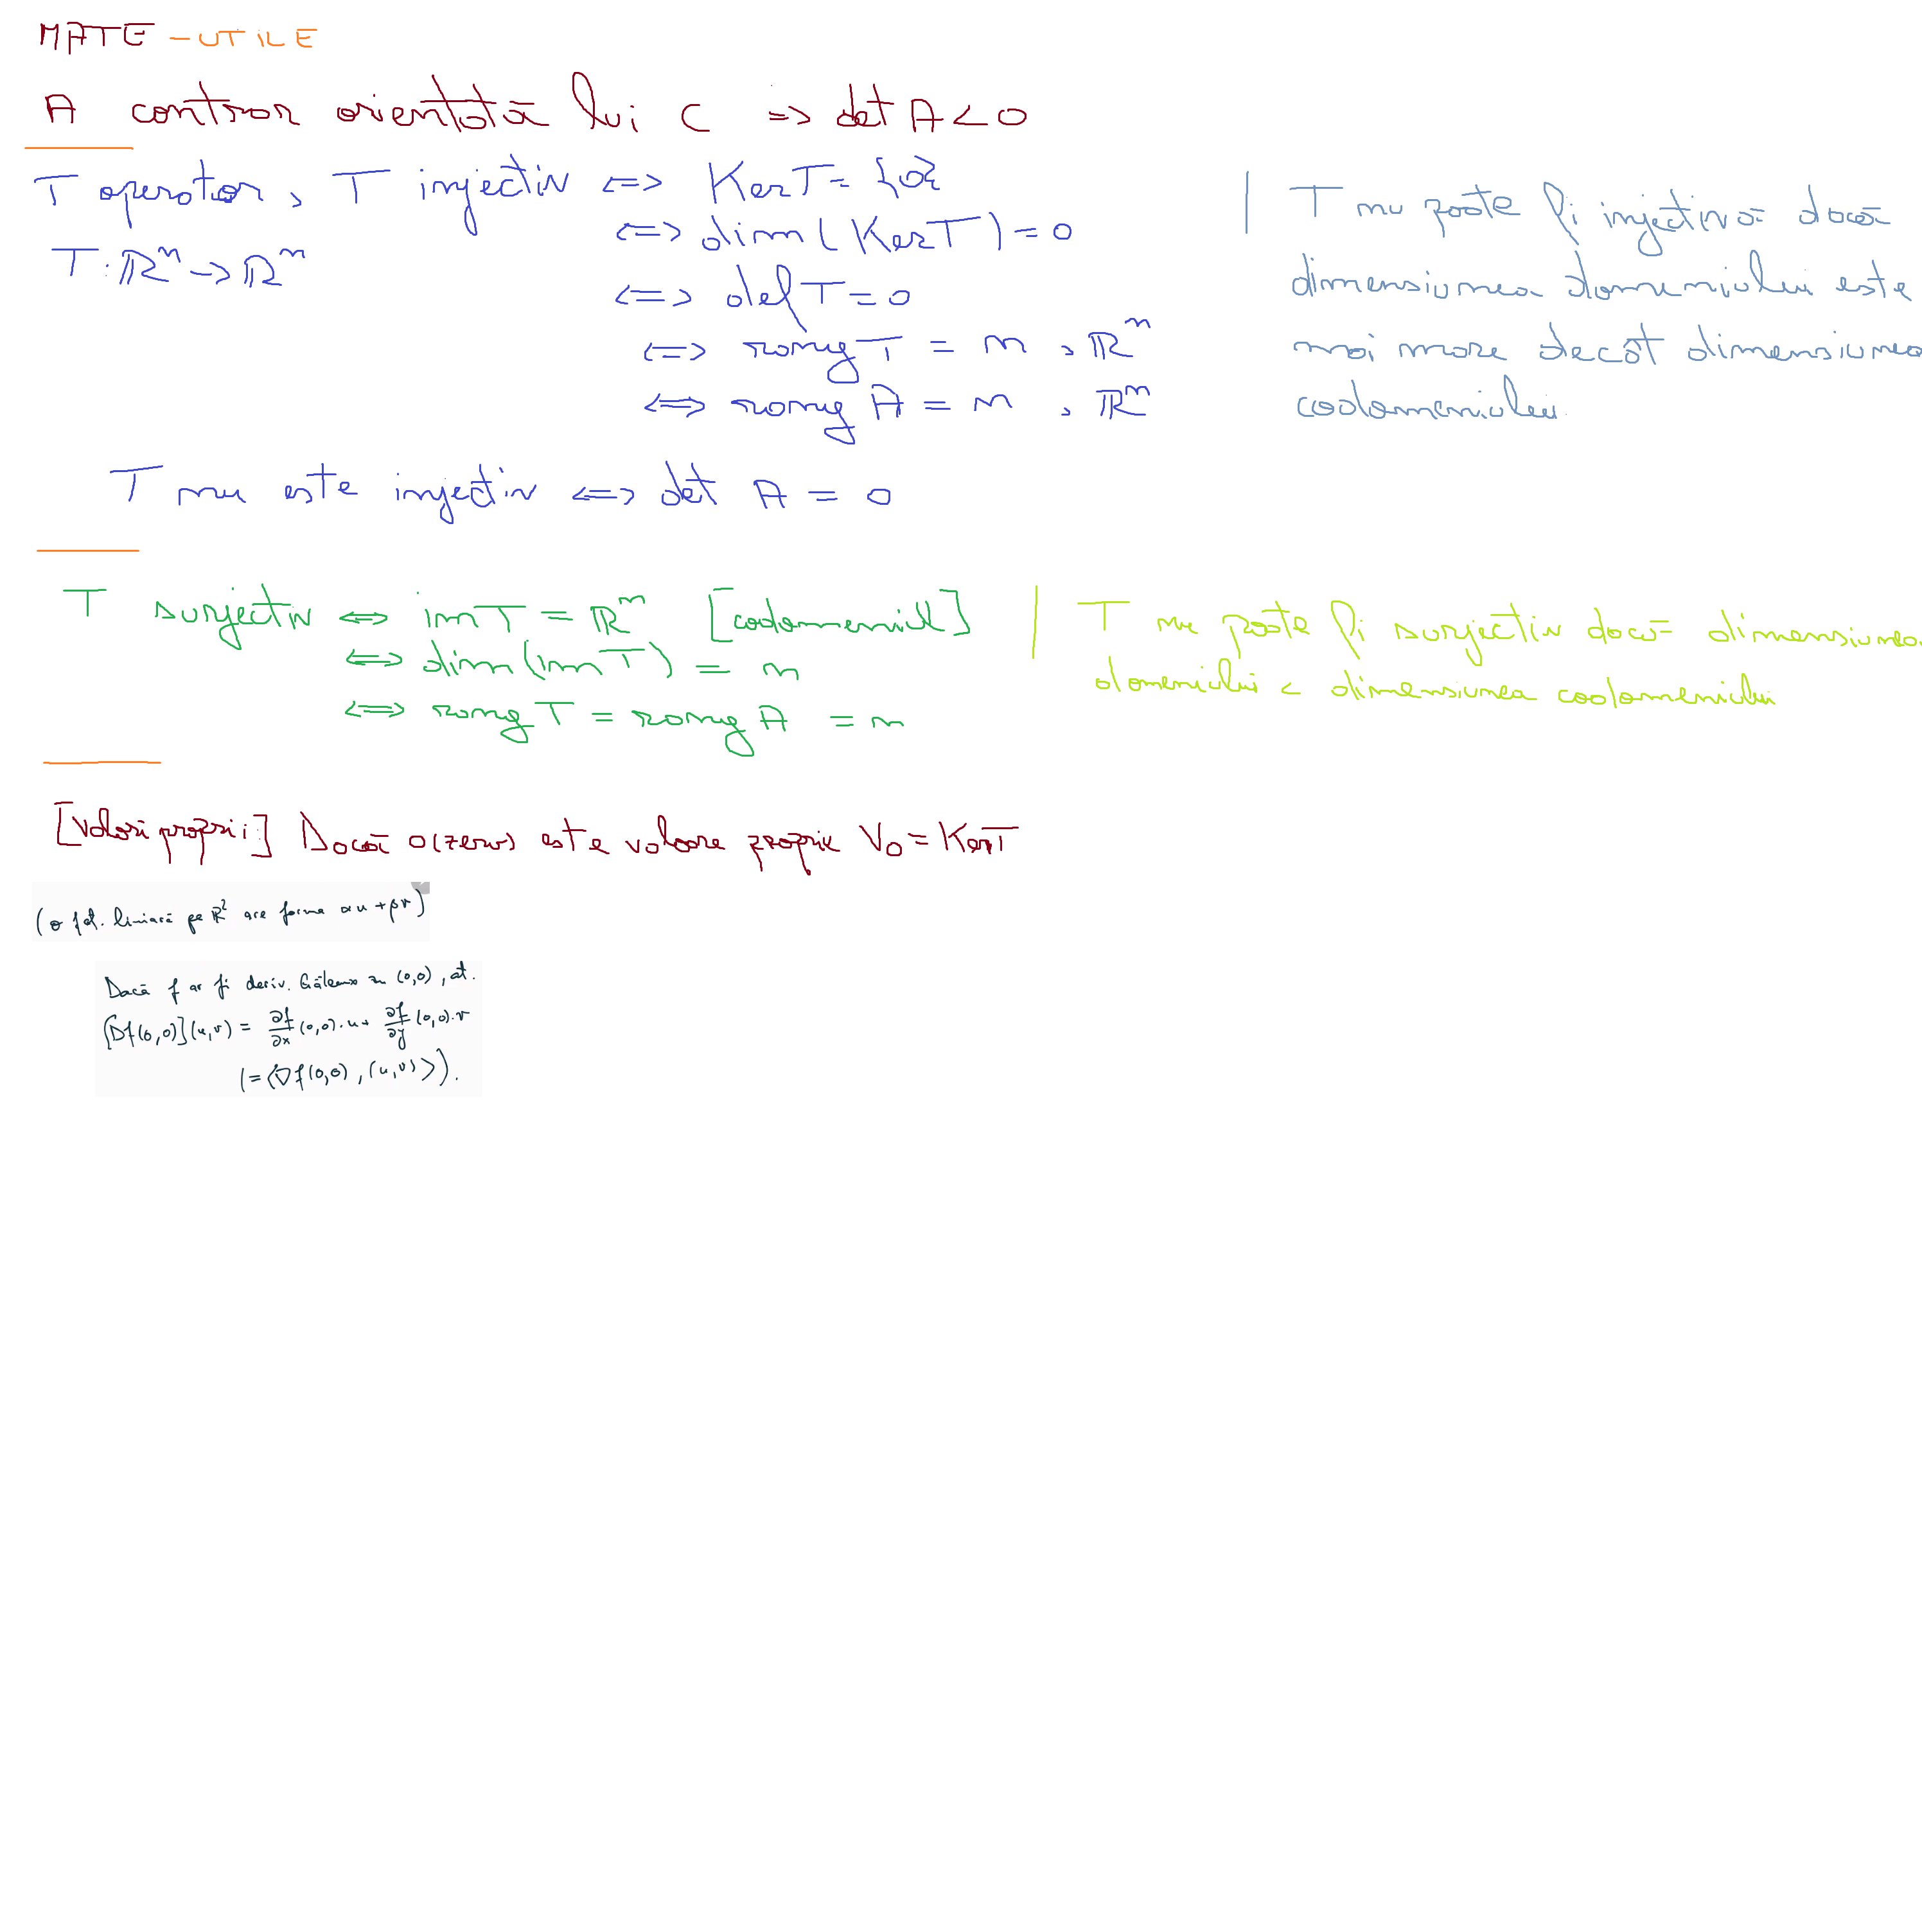 MATE - UTILE
A contrar orientată lui C => det A < 0
T operator, T injectiv <=> Ker T = {0}
T: ℝⁿ -> ℝⁿ
<=> dim (Ker T) = 0
<=> def T = 0
<=> rang T = n, ℝⁿ
<=> rang A = n, ℝⁿ
| T nu poate fi injectivă dacă
dimensiunea domeniului este
mai mare decât dimensiunea
codomeniului.
T nu este injectiv <=> det A = 0
T surjectiv <=> im T = ℝⁿ [codomeniul]
<=> dim (Im T) = n
<=> rang T = rang A = n
| T nu poate fi surjectiv dacă dimensiunea
domeniului < dimensiunea codomeniului
[Valori proprii:] Dacă 0(zero) este valoare proprie V₀ = Ker T
(o fct. liniară pe ℝ² are forma αu + βv)
Dacă f ar fi deriv. Gâteaux în (0,0), at.
[Df(0,0)](u,v) = ∂f/∂x (0,0)·u + ∂f/∂y (0,0)·v
(= <∇f(0,0), (u,v)>).